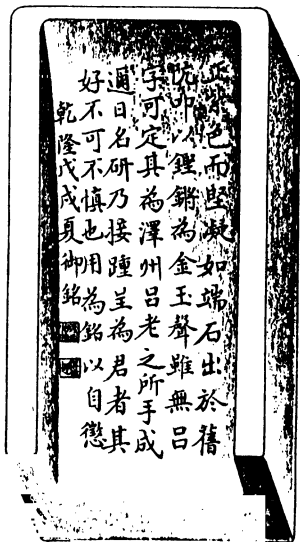 正紫色而堅凝如端石出於舊
坑叩以鏗鏘為金玉聲雖無呂
字可定其為澤州呂老之所手成
邇日名研乃接踵呈為君者其
好不可不慎也用為銘以自懲
乾隆戊戌夏御銘